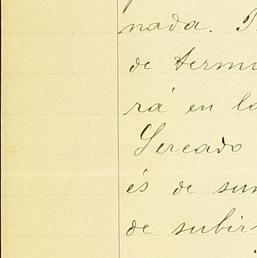 nada.
de termi
rá en lo
Sercado
és de sum
de subir